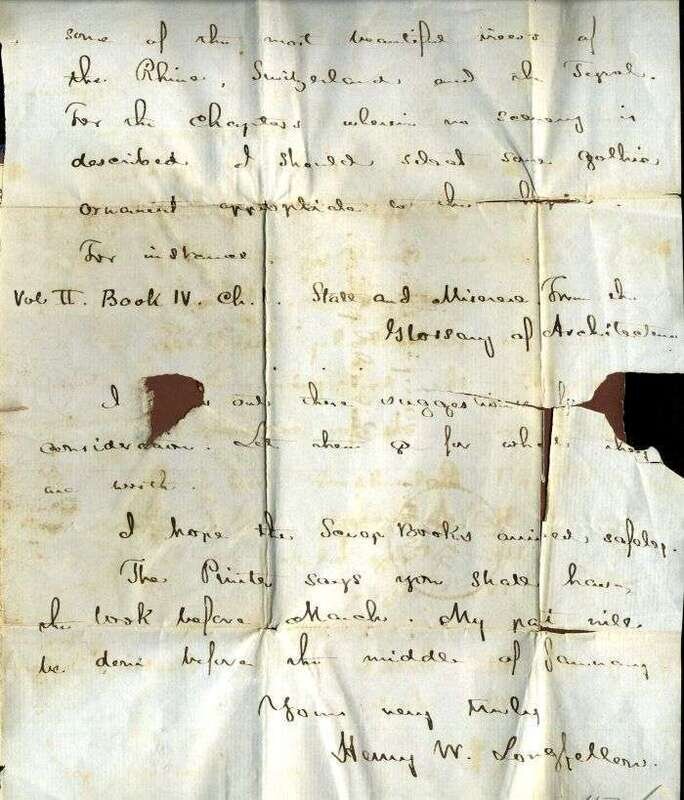 some of the most beautiful views of
the Rhine, Switzerland, and the Tyrol.
For the Chapters wherein no scenery is
described I should select some gothic
ornament appropriate to the
For instance.
Vol II. Book IV. Ch. I. Stall and Miserere from the
Glossary of Architecture
I out these suggestions
consideration. Let them go for what they
are worth.
I hope the Scrap Books arrived safely.
The Printer says you shall have
the work before March. My part will
be done before the middle of January
Yours very truly
Henry W. Longfellow.